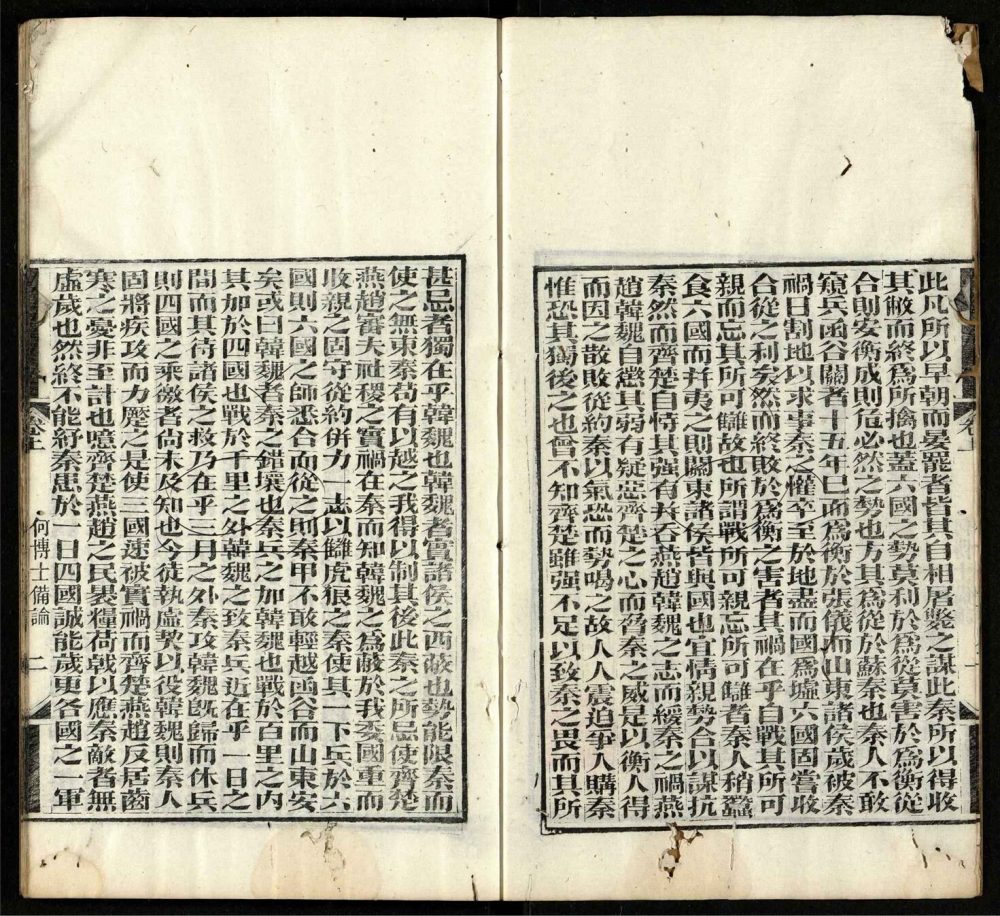 此凡所以早朝而晏罷者皆其自相屠斃之謀此秦所以得收
其敝而終爲所擒也蓋六國之勢莫利於爲從莫害於爲衡從
合則安衡成則危必然之勢也方其爲從於蘇秦也秦人不敢
窺兵函谷關者十五年已而爲衡於張儀而山東諸侯歲被秦
禍日割地以求事秦之懽卒至於地盡而國爲墟六國固嘗收
合從之利矣然而終敗於爲衡之害者其禍在乎自戰其所可
親而忘其所可讎故也所謂戰所可親忘所可讎者秦人稍蠶
食六國而幷夷之則關東諸侯皆與國也宜情親勢合以謀抗
秦然而齊楚自恃其强有幷吞燕趙韓魏之志而緩秦之禍燕
趙韓魏自懲其弱有疑惡齊楚之心而脅秦之威是以衡人得
而因之散敗從約秦以氣恐而勢喝之故人人震迫爭入購秦
惟恐其獨後之也曾不知齊楚雖强不足以致秦之畏而其所
甚忌者獨在乎韓魏也韓魏者實諸侯之西蔽也勢能限秦而
使之無東秦苟有以越之我得以制其後此秦之所忌使齊楚
燕趙審夫社稷之實禍在秦而知韓魏之爲蔽於我委國重而
收親之固守從約併力一志以讎虎狼之秦使其一下兵於六
國則六國之師悉合而從之則秦甲不敢輕越函谷而山東安
矣或曰韓魏者秦之錯壤也秦兵之加韓魏也戰於百里之内
其加於四國也戰於千里之外韓魏之致秦兵近在乎一日之
間而其待諸侯之救乃在乎三月之外秦攻韓魏旣歸而休兵
則四國之乘徼者尙未及知也今徒執虛契以役韓魏則秦人
固將疾攻而力壓之是使二國速被實禍而齊楚燕趙反居齒
寒之憂非至計也噫齊楚燕趙之民褁糧荷戟以應秦敵者無
虛歲也然終不能紓秦患於一日四國誠能歲更各國之一軍
卷上 何博士備論 二